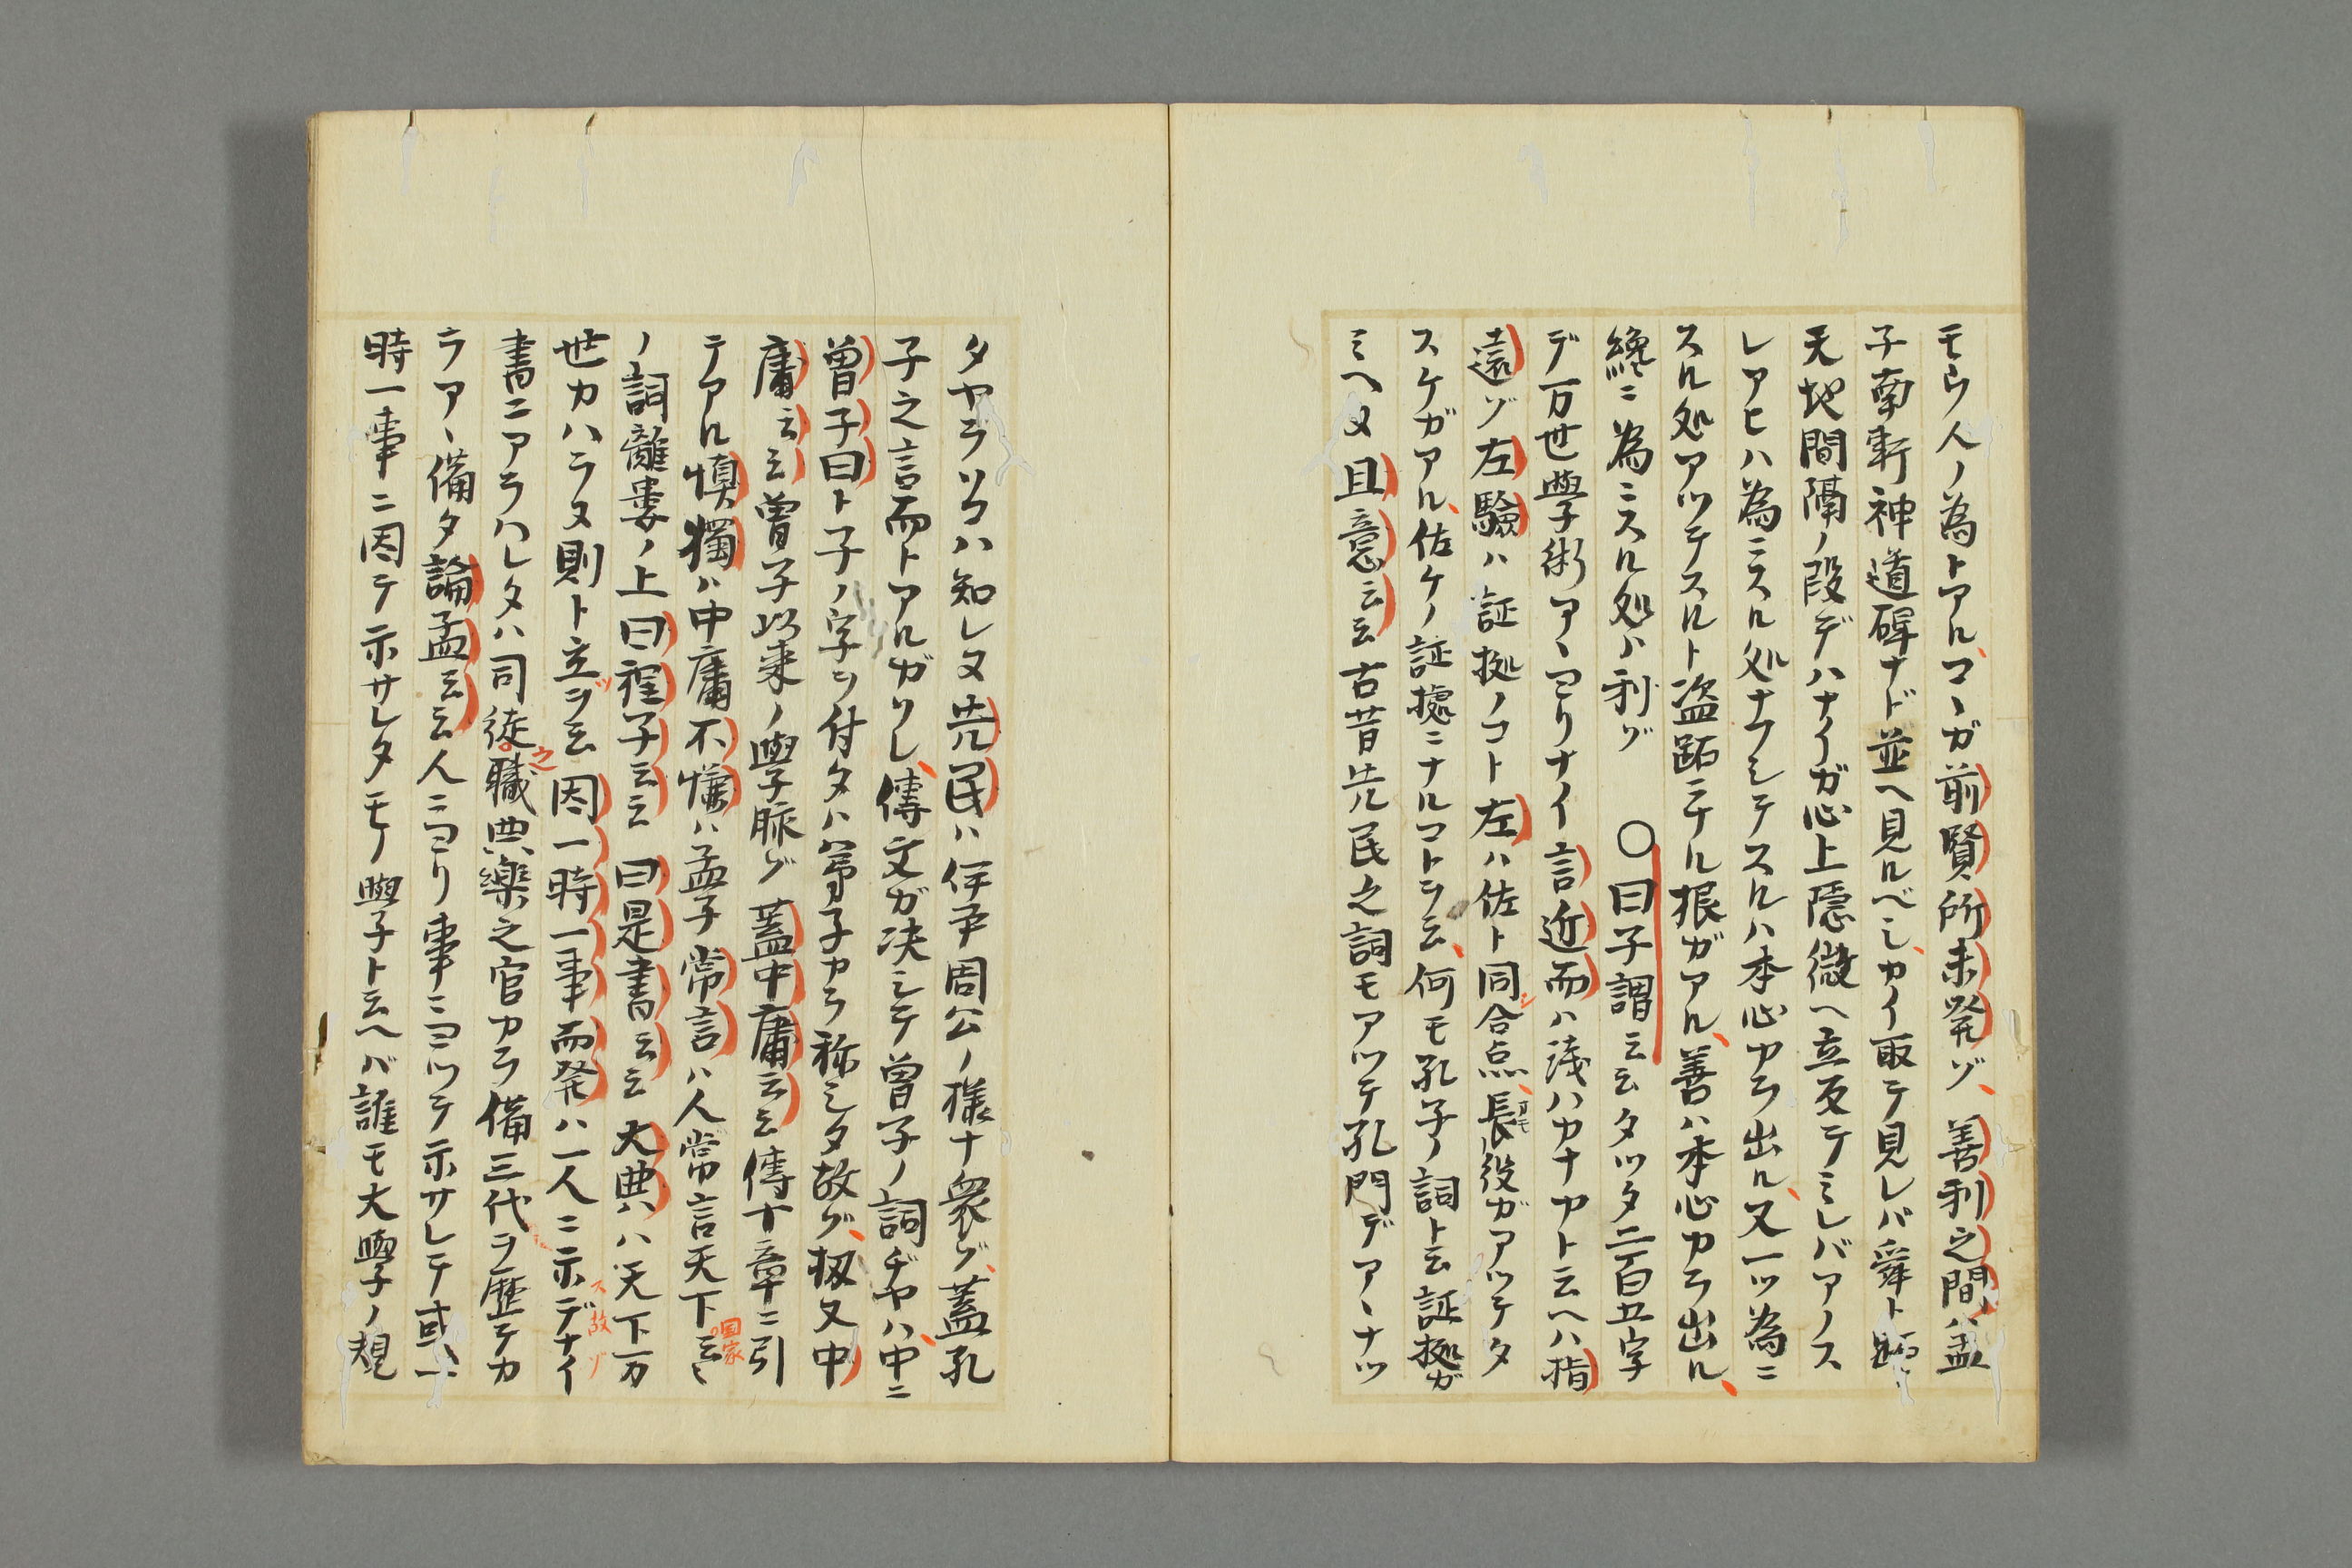 モラ人ノ為トアル、コヽガ前賢所未発ゾ、善利之間ハ孟
子南軒神道碑ナド並ヘ見ルベシ、カイ取テ見レバ舜ト跖ニ
天地間隔ノ段デハナイガ心上隠微ヘ立反テミレバアノス
レアヒハ為ニスル処ナフシテスルハ本心カラ出ル、又一ツ為ニ
スル処アツテスルト盗跖ニナル根ガアル、善ハ本心カラ出ル、
纔ニ為ニスル処ハ利ゾ 〇曰子謂云云タツタ二百五字
デ万世學術アヽコリナイ言近而ハ浅ハカナヤトヘハ指
遠ゾ左驗ハ証拠ノコト左ハ佐ト同シ合点、長役ガアツテタ
スケガアル、佐ケノ証據ニナルコトヲ云、何モ孔子ノ詞ト云証拠ガ
ミヘヌ且意云云古昔先民之詞モアツテ孔門デアヽナツ
タヤラソコハ知レヌ先民ハ伊尹周公ノ様ナ衆ゾ、蓋孔
子之言而トアルガソレ、傳文ガ决シテ曽子ノ詞ヂヤハ、中ニ
曽子曰ト子ノ字ヲ付タハ弟子カラ称シタ故ゾ、扨又中
庸云云曽子以来ノ學脈ゾ蓋中庸云云傳十章ニ引
テアル慎獨ハ中庸不慊ハ孟子常言ハ人常言天下国家云々
ノ詞離婁ノ上曰程子云云 曰是書云云 大典ハ天下万
世カハラヌ則ト立ツヲ云因一時一事而発ハ一人ニ示デナイス故ゾ
書ニアラハレタハ司徒之職典樂之官カラ備三代ヲ歴テカ
ラアヽ備タ論孟云云人ニヨリ事ニヨツテ示サレテ或一
時一事ニ因テ示サレタモノ學トヘバ誰モ大學ノ規